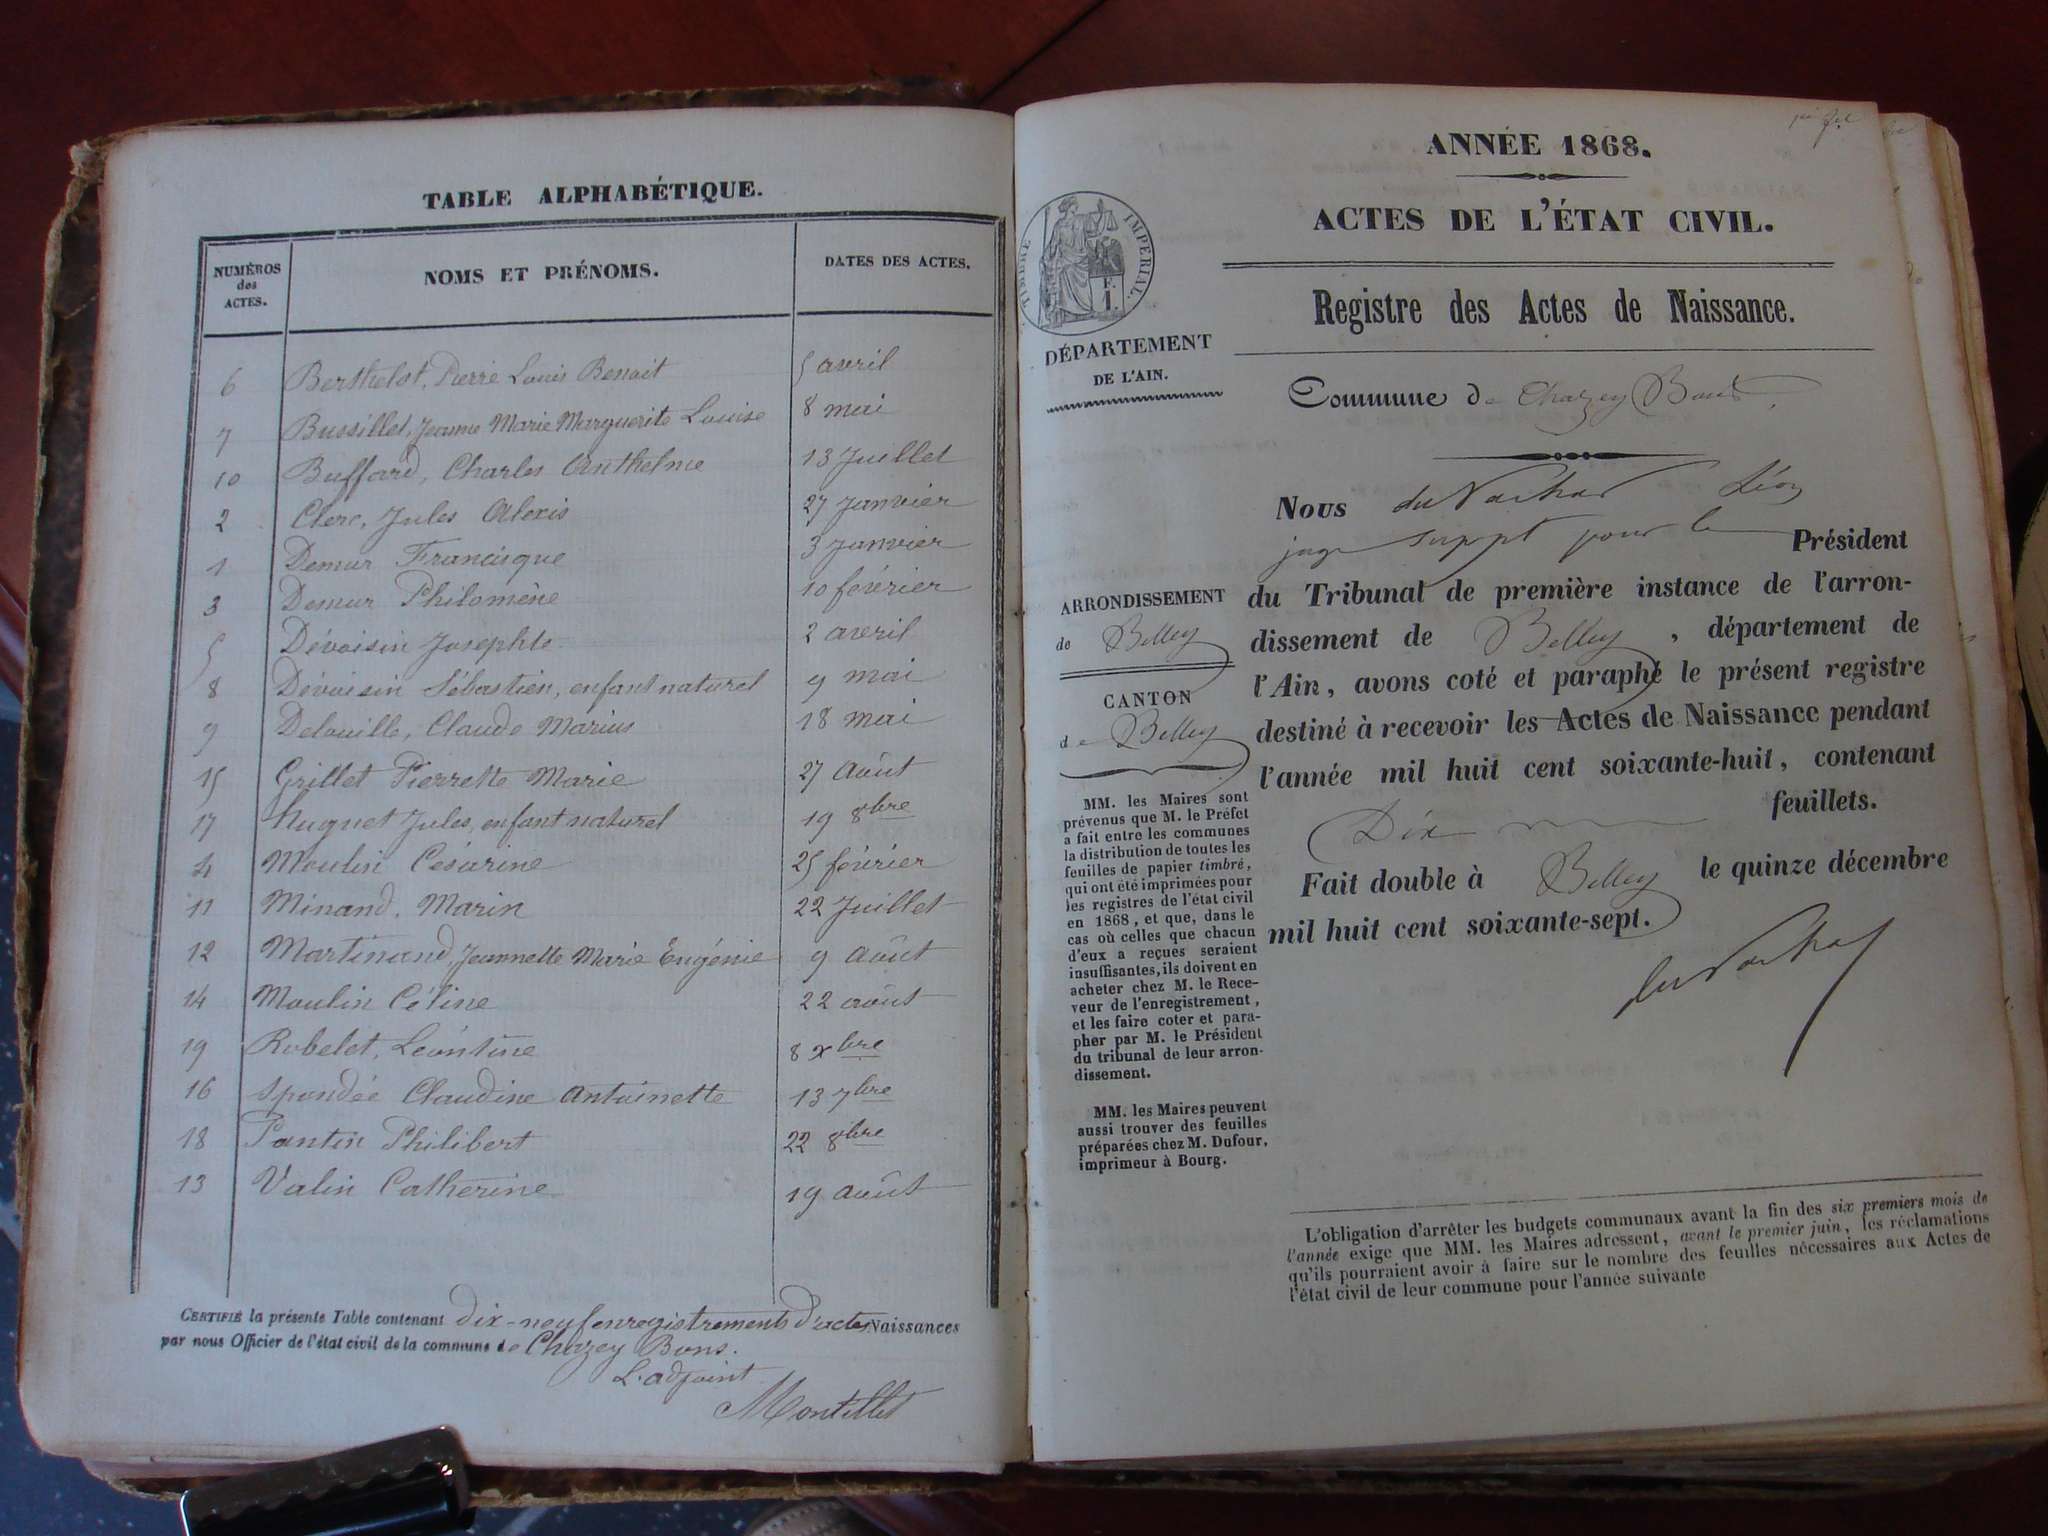 TABLE ALPHABÉTIQUE.
NUMÉROS des ACTES. NOMS ET PRÉNOMS. DATES DES ACTES.
6 Berthelot, Pierre Louis Benoit 5 avril
7 Bussillet, Jeanne Marie Marguerite Louise 8 mai
10 Buffard, Charles Anthelme 13 Juillet
2 Clerc, Jules Alexis 27 Janvier
1 Demur Francisque 3 Janvier
3 Demur Philomène 10 février
5 Dévoisin Josephte 2 avril
8 Dévoisin Sébastien, enfant naturel 9 mai
9 Delouille, Claude Marius 18 mai
15 Grillet Pierrette Marie 27 Août
17 Huguet Jules, enfant naturel 19 8bre
4 Moulin Césarine 25 février
11 Minand, Marin 22 Juillet
12 Martinand, Jeannette Marie Eugénie 9 Août
14 Moulin Céline 22 août
19 Robelet, Léontine 8 xbre
16 Spondée Claudine Antoinette 13 7bre
18 Pantin Philibert 22 8bre
13 Valin Catherine 19 août
CERTIFIÉ la présente Table contenant dix-neuf enregistrements d'actes Naissances
par nous Officier de l'état civil de la commune de Chazey Bons.
L'adjoint
Montillet
ANNÉE 1868.
ACTES DE L'ÉTAT CIVIL.
TIMBRE IMPÉRIAL.
Registre des Actes de Naissance.
DÉPARTEMENT
DE L'AIN.
Commune de Chazey Bons
Nous Léon
juge suppt pour le Président
du Tribunal de première instance de l'arron-
dissement de Belley, département de
l'Ain, avons coté et paraphé le présent registre
destiné à recevoir les Actes de Naissance pendant
l'année mil huit cent soixante-huit, contenant
Dix feuillets.
Fait double à Belley le quinze décembre
mil huit cent soixante-sept.
ARRONDISSEMENT
de Belley
CANTON
de Belley
MM. les Maires sont
prévenus que M. le Préfet
a fait entre les communes
la distribution de toutes les
feuilles de papier timbré,
qui ont été imprimées pour
les registres de l'état civil
en 1868, et que, dans le
cas où celles que chacun
d'eux a reçues seraient
insuffisantes, ils doivent en
acheter chez M. le Rece-
veur de l'enregistrement,
et les faire coter et para-
pher par M. le Président
du tribunal de leur arron-
dissement.
MM. les Maires peuvent
aussi trouver des feuilles
préparées chez M. Dufour,
imprimeur à Bourg.
L'obligation d'arrêter les budgets communaux avant la fin des six premiers mois de
l'année exige que MM. les Maires adressent, avant le premier juin, les réclamations
qu'ils pourraient avoir à faire sur le nombre des feuilles nécessaires aux Actes de
l'état civil de leur commune pour l'année suivante